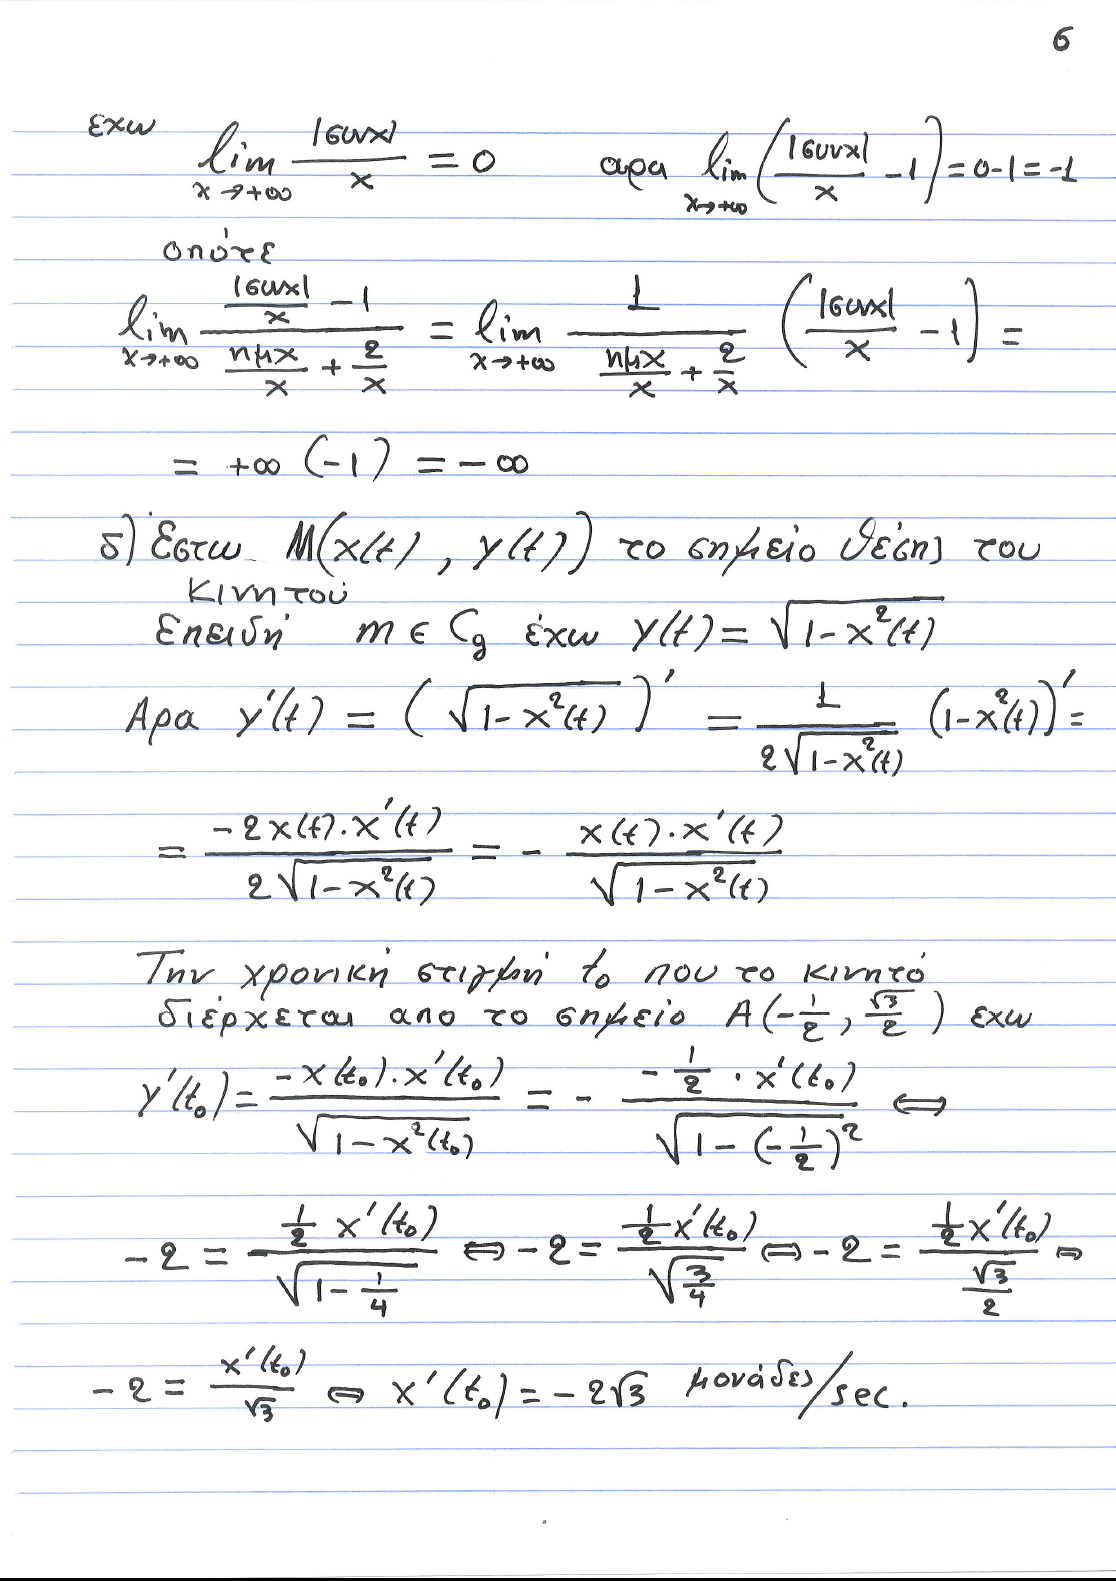 6
εχω lim x→+∞ |συνx|/x = 0 αρα lim x→+∞ (|συνx|/x - 1) = 0-1 = -1
οπότε
lim x→+∞ (|συνx|/x - 1)/(ημx/x + 2/x) = lim x→+∞ 1/(ημx/x + 2/x) (|συνx|/x - 1) =
= +∞ (-1) = -∞
δ) Έστω M(x(t), y(t)) το σημείο θέσης του
κινητού
Επειδή m ∈ Cg έχω y(t) = √(1-x²(t))
Αρα y'(t) = (√(1-x²(t)))' = 1/(2√(1-x²(t))) (1-x²(t))' =
= -2x(t)·x'(t)/(2√(1-x²(t))) = - x(t)·x'(t)/√(1-x²(t))
Την χρονική στιγμή t₀ που το κινητό
διέρχεται απο το σημείο A(-1/2, √3/2) εχω
y'(t₀) = -x(t₀)·x'(t₀)/√(1-x²(t₀)) = - (-1/2 · x'(t₀))/√(1-(-1/2)²) ⇔
-2 = 1/2 x'(t₀)/√(1-1/4) ⇔ -2 = 1/2 x'(t₀)/√(3/4) ⇔ -2 = 1/2 x'(t₀)/(√3/2) ⇔
-2 = x'(t₀)/√3 ⇔ x'(t₀) = -2√3 μονάδες/sec.